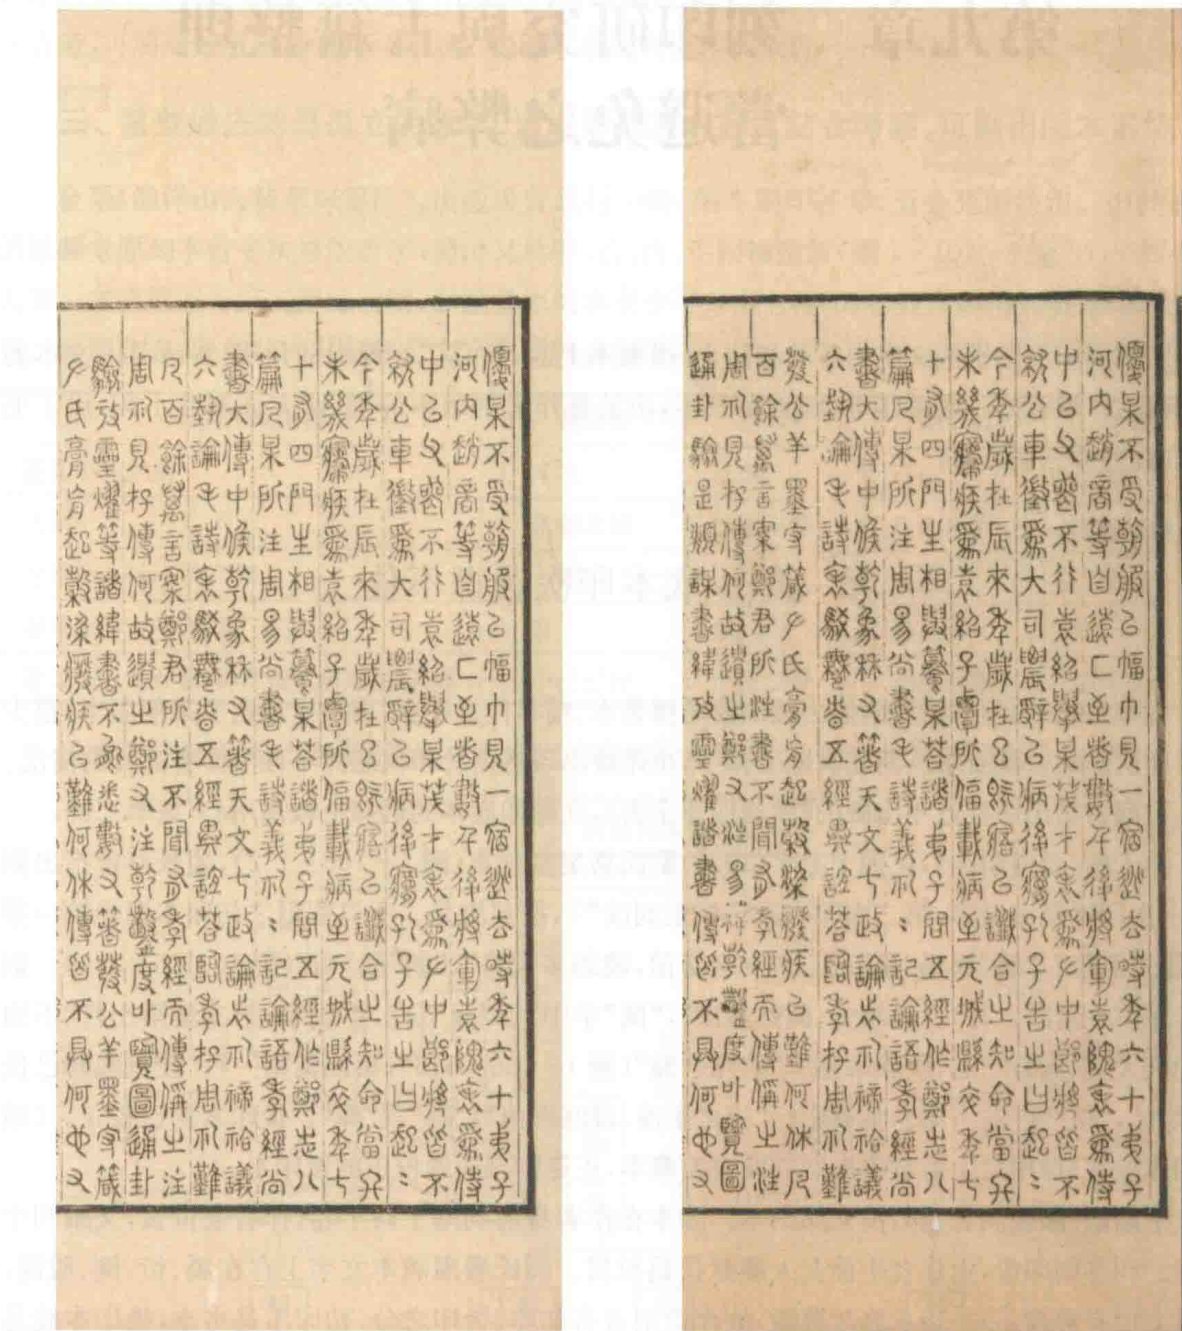 優某不受朝服㠯幅巾見一宿逃去時年六十弟子
河內趙商等自遠亡至者數千後將軍袁隗表爲侍
中㠯父喪不行袁紹舉某茂才表爲𠂇中郎將皆不
就公車徵爲大司農辭㠯病後寢孔子告之曰起〻
今年歲在辰來年歲在巳既寤㠯讖合之知命當終
未幾寢疾爲袁紹子譚所偪載病至元城縣卒年七
十有四門生相與纂某荅諸弟子問五經作鄭志八
篇凡某所注周易尚書毛詩義礼〻記論語孝經尚
書大傳中候乾象秝又箸天文七政論志礼禘祫議
六藝論毛詩表駮許五經異誼荅臨孝存周礼難
發公羊墨守箴𠂇氏膏肓起穀梁癈疾㠯難何休凡
百餘萬言案鄭君所注書不聞有孝經而傳偁之注
周礼見存傳何故遺之鄭又注易緯乾鑿度卟覽圖
通卦驗是類謀書緯攷靈燿諸書傳皆不具何也又
優某不受朝服㠯幅巾見一宿逃去時年六十弟子
河內趙商等自遠亡至者數千後將軍袁隗表爲侍
中㠯父喪不行袁紹舉某茂才表爲𠂇中郎將皆不
就公車徵爲大司農辭㠯病後寢孔子告之曰起〻
今年歲在辰來年歲在巳既寤㠯讖合之知命當終
未幾寢疾爲袁紹子譚所偪載病至元城縣卒年七
十有四門生相與纂某荅諸弟子問五經作鄭志八
篇凡某所注周易尚書毛詩義礼〻記論語孝經尚
書大傳中候乾象秝又箸天文七政論志礼禘祫議
六藝論毛詩表駮許五經異誼荅臨孝存周礼難
凡百餘萬言案鄭君所注不聞有孝經而傳偁之注
周礼見存傳何故遺之鄭又注乾鑿度卟覽圖通卦
驗攷靈燿等諸緯書不勝悉數又箸發公羊墨守箴
𠂇氏膏肓起穀梁癈疾㠯難何休傳皆不具何也又